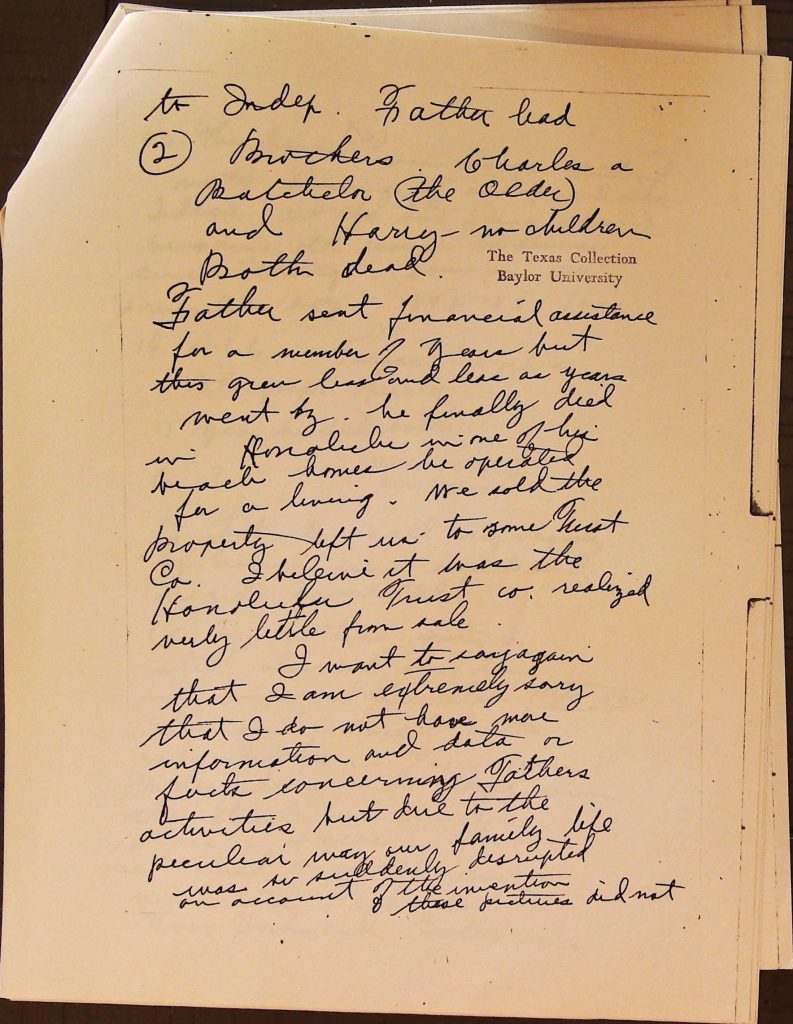 to Indep. Father had
② Brothers. Charles a
Batchelor (the Older)
and Harry - no children
Both dead.
The Texas Collection
Baylor University
Father sent financial assistance
for a number of years but
this grew less and less as years
went by. he finally died
in Honolulu in one of his
beach homes he operated
for a living. We sold the
property left us to some Trust
Co. I beleive it was the
Honolulu Trust co. realized
verly little from sale.
I want to say again
that I am extremely sory
that I do not have more
information and data or
facts concerning Fathers
activities but due to the
peculiar way our family life
was so suddenly disrupted
on account of the invention
& these pictures did not